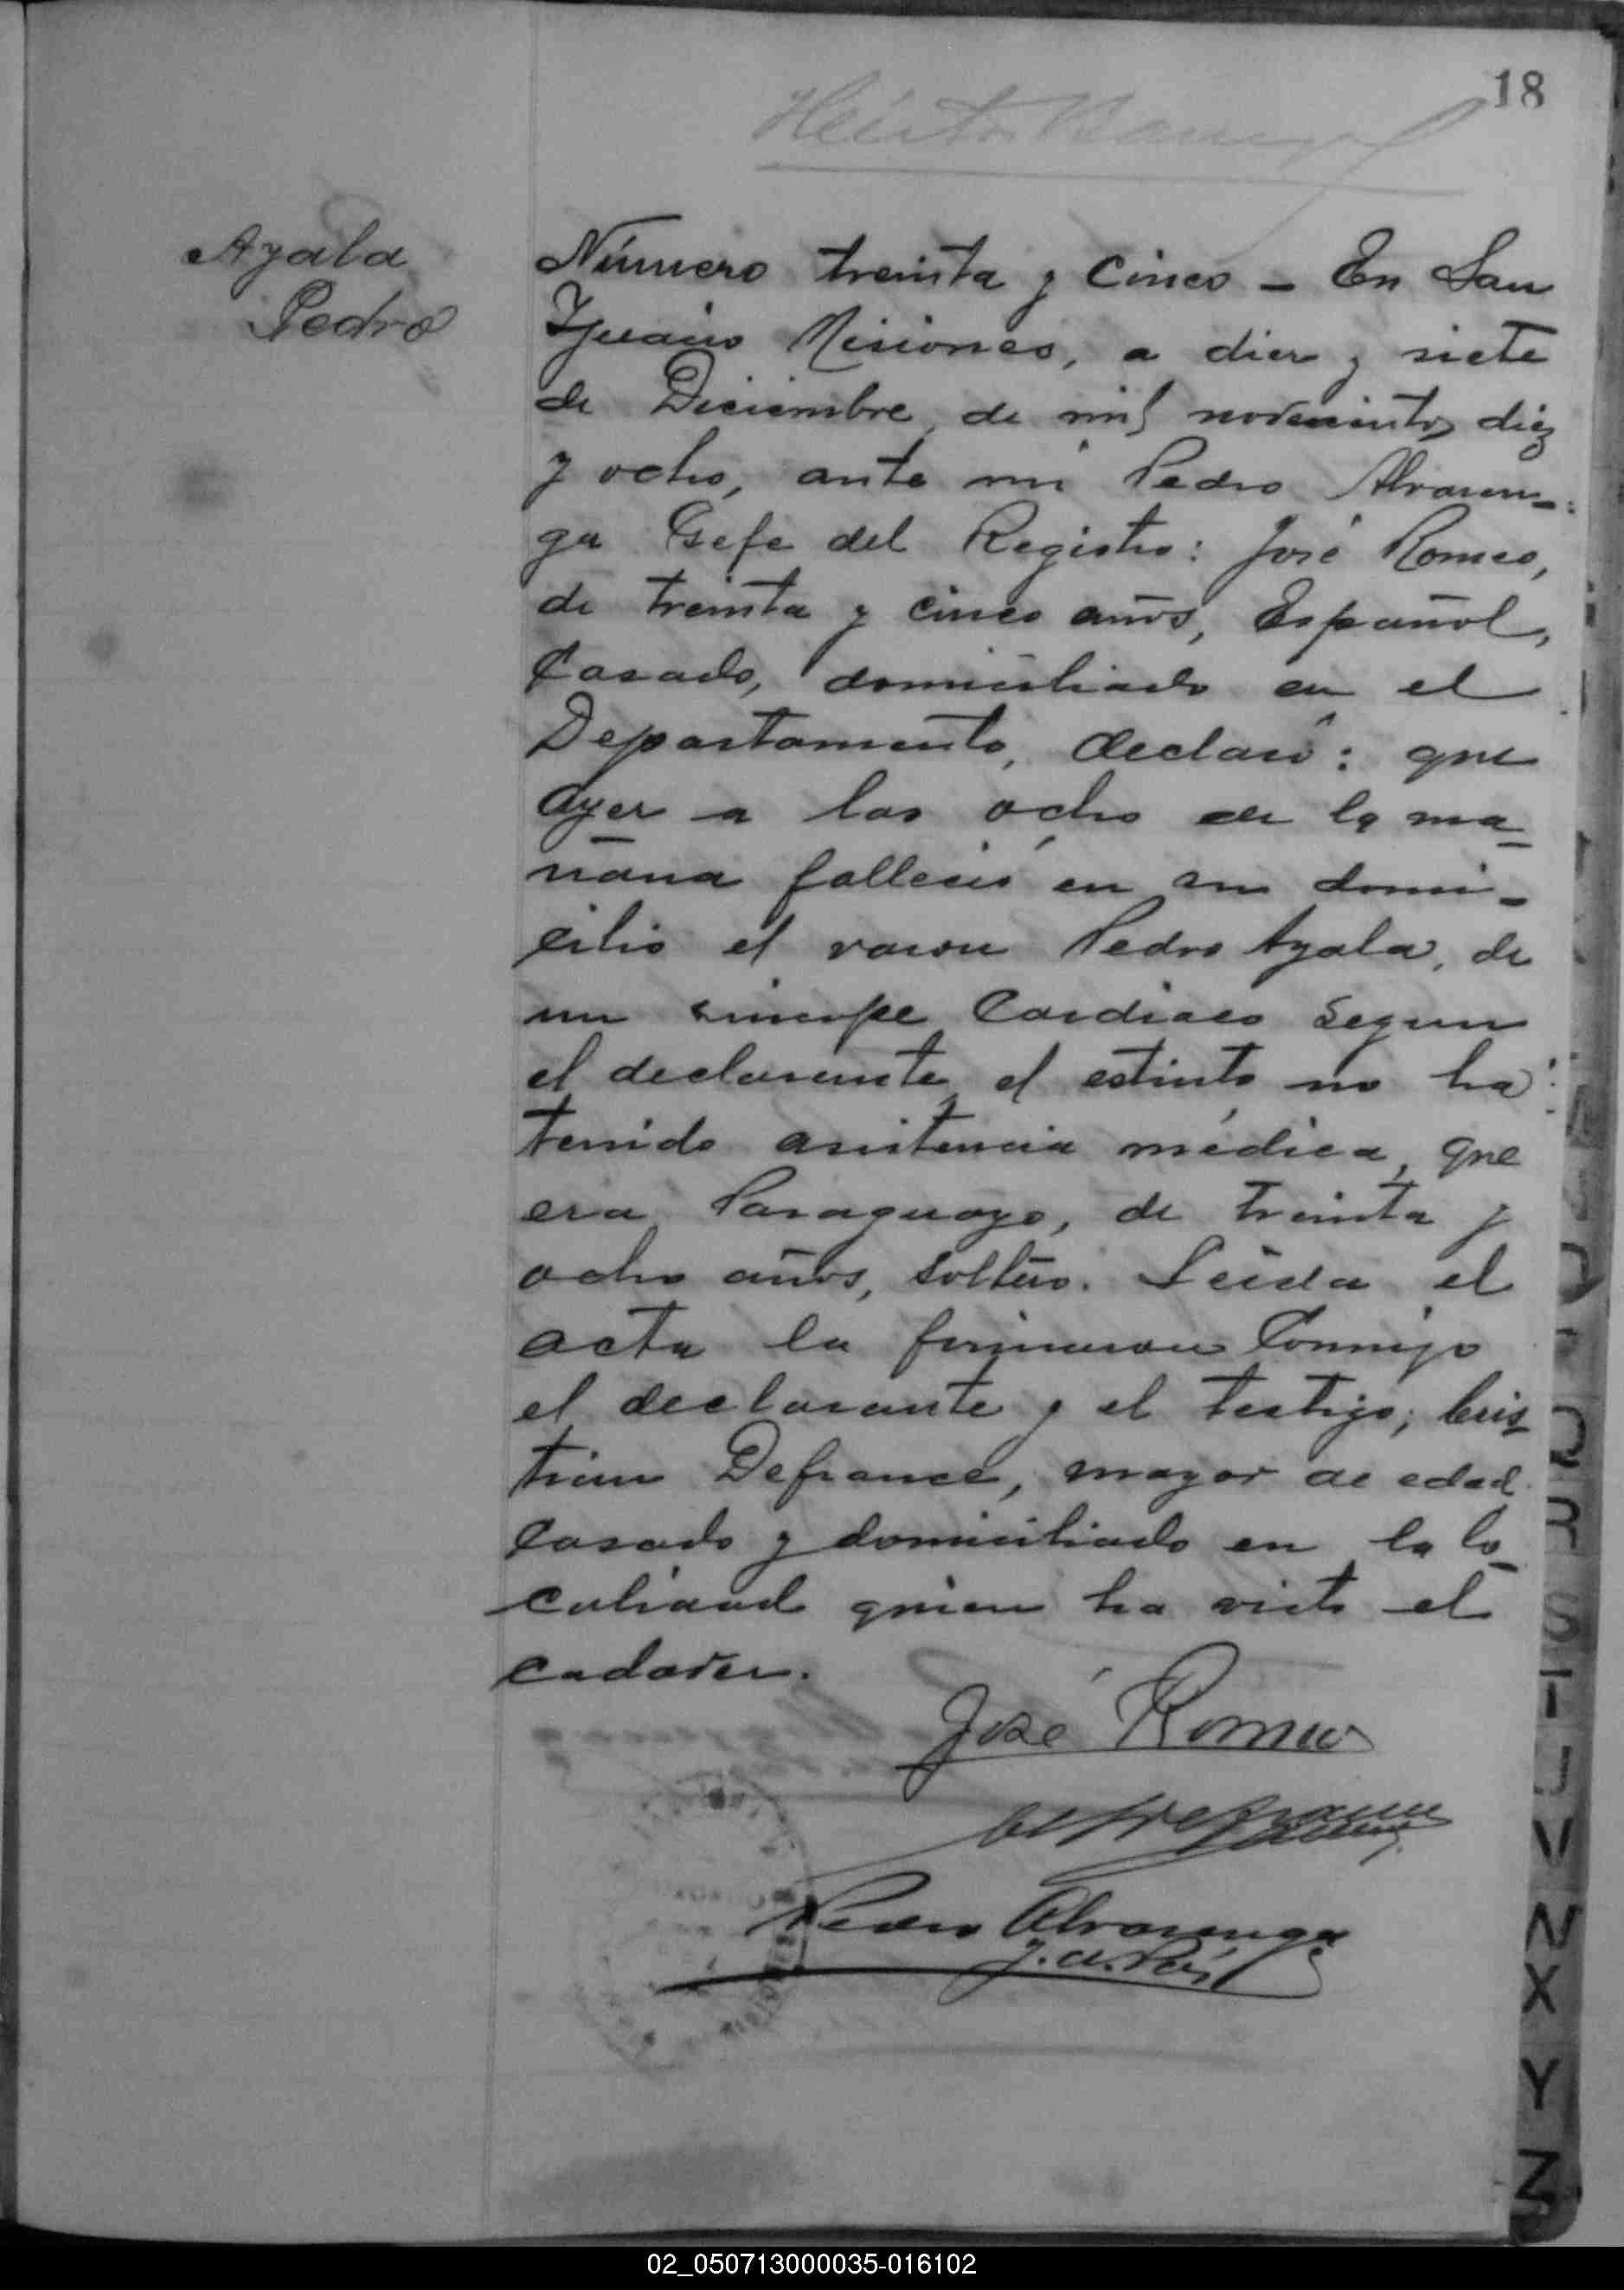 18
Ayala
Pedro
Número treinta y cinco – En San
Ygnacio Misiones, a diez y siete
de Diciembre de mil novecientos diez
y ocho, ante mi Pedro Alvaren-
ga Gefe del Registro: José Romeo,
de treinta y cinco años, Español,
Casado, domiciliado en el
Departamento, declaró: que
ayer a las ocho de la ma-
ñana falleció en su domi-
cilio el varon Pedro Ayala, de
un sincope Cardiaco segun
el declarante, el estinto no ha
tenido asistencia médica, que
era Paraguayo, de treinta y
ocho años, soltero. Leida el
acta la firmaron Conmigo
el declarante y el testigo; Cris-
tian Defrance, mayor de edad
Casado y domiciliado en la lo-
calidad quien ha visto el
cadaver.
José Romeo
Pedro Alvarenga
J. de Paz
R S T U V N X Y Z
02_050713000035-016102